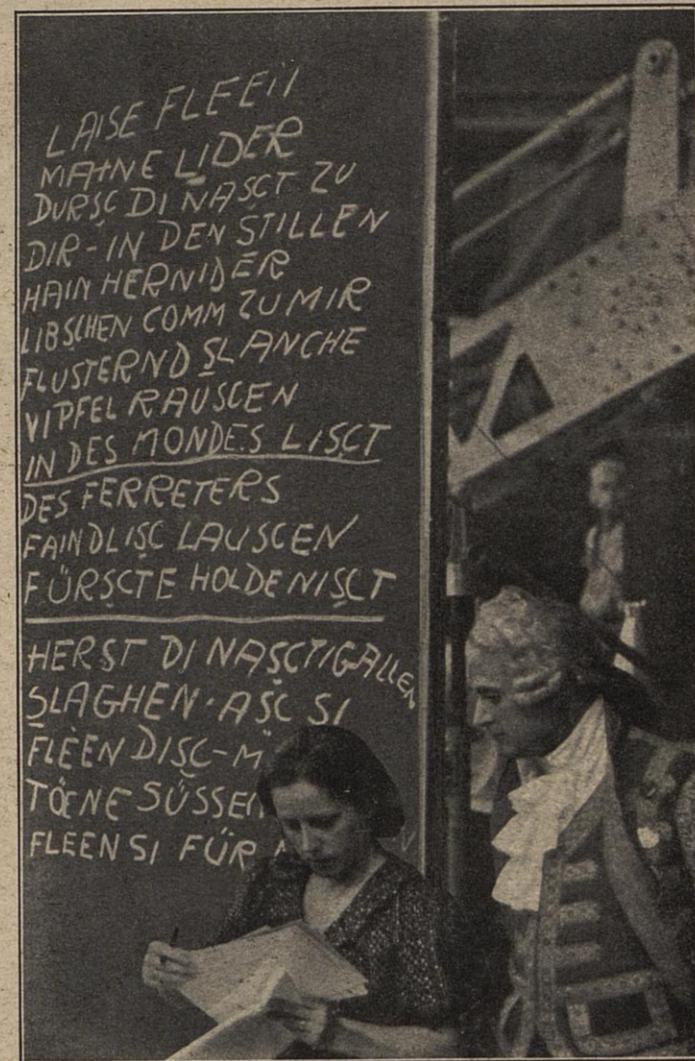 LAISE FLEEN
MAINE LIDER
DURSC DI NASCT ZU
DIR-IN DEN STILLEN
HAIN HERNIDER
LIBSCHEN COMM ZU MIR
FLUSTERND SLANCHE
VIPFEL RAUSCEN
IN DES MONDES LISCT
DES FERRETERS
FAINDLISC LAUSCEN
FÜRSCTE HOLDE NISCT
HERST DI NASCTIGALLEN
SLAGHEN·ASC SI
FLEEN DISC-M
TÖENE SÜSSEN
FLEEN SI FÜR